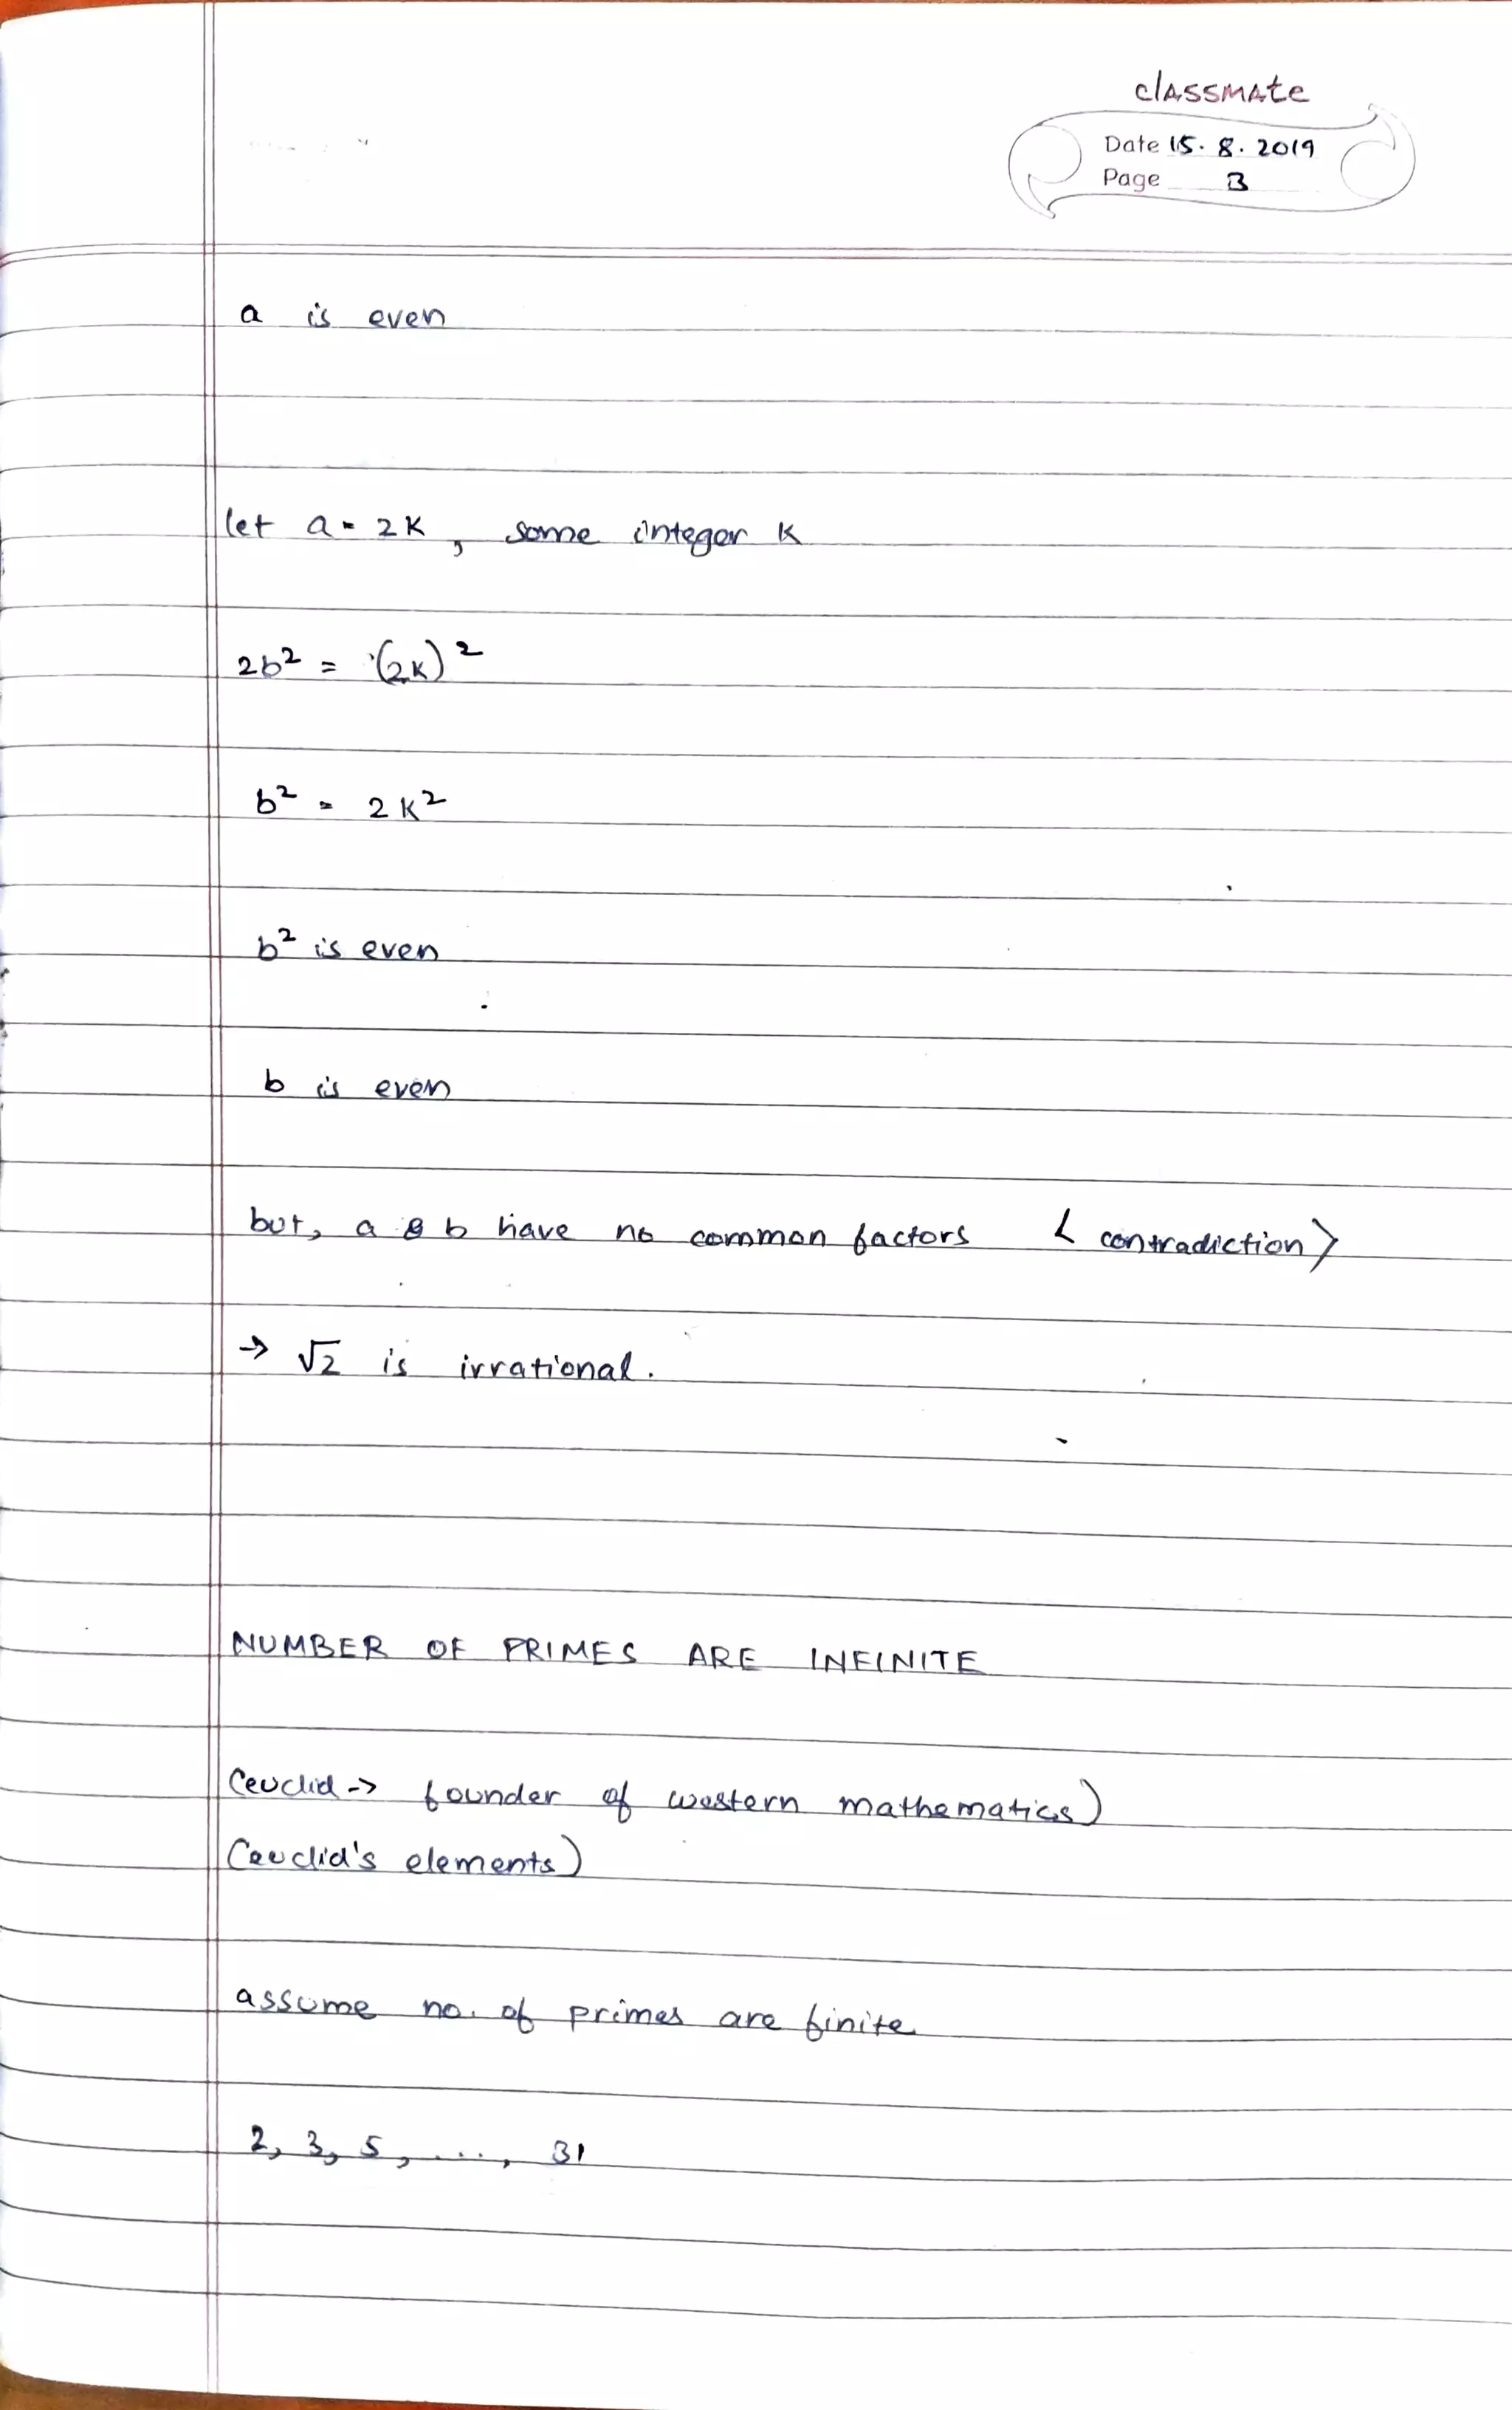 classmate
Date 15.8.2019
Page 3
a is even
let a = 2k, some integer k
2b² = (2k)²
b² = 2k²
b² is even
b is even
but, a & b have no common factors < contradiction >
→ √2 is irrational.
NUMBER OF PRIMES ARE INFINITE
(euclid → founder of western mathematics)
(euclid's elements)
assume no. of primes are finite
2, 3, 5, ..., 31